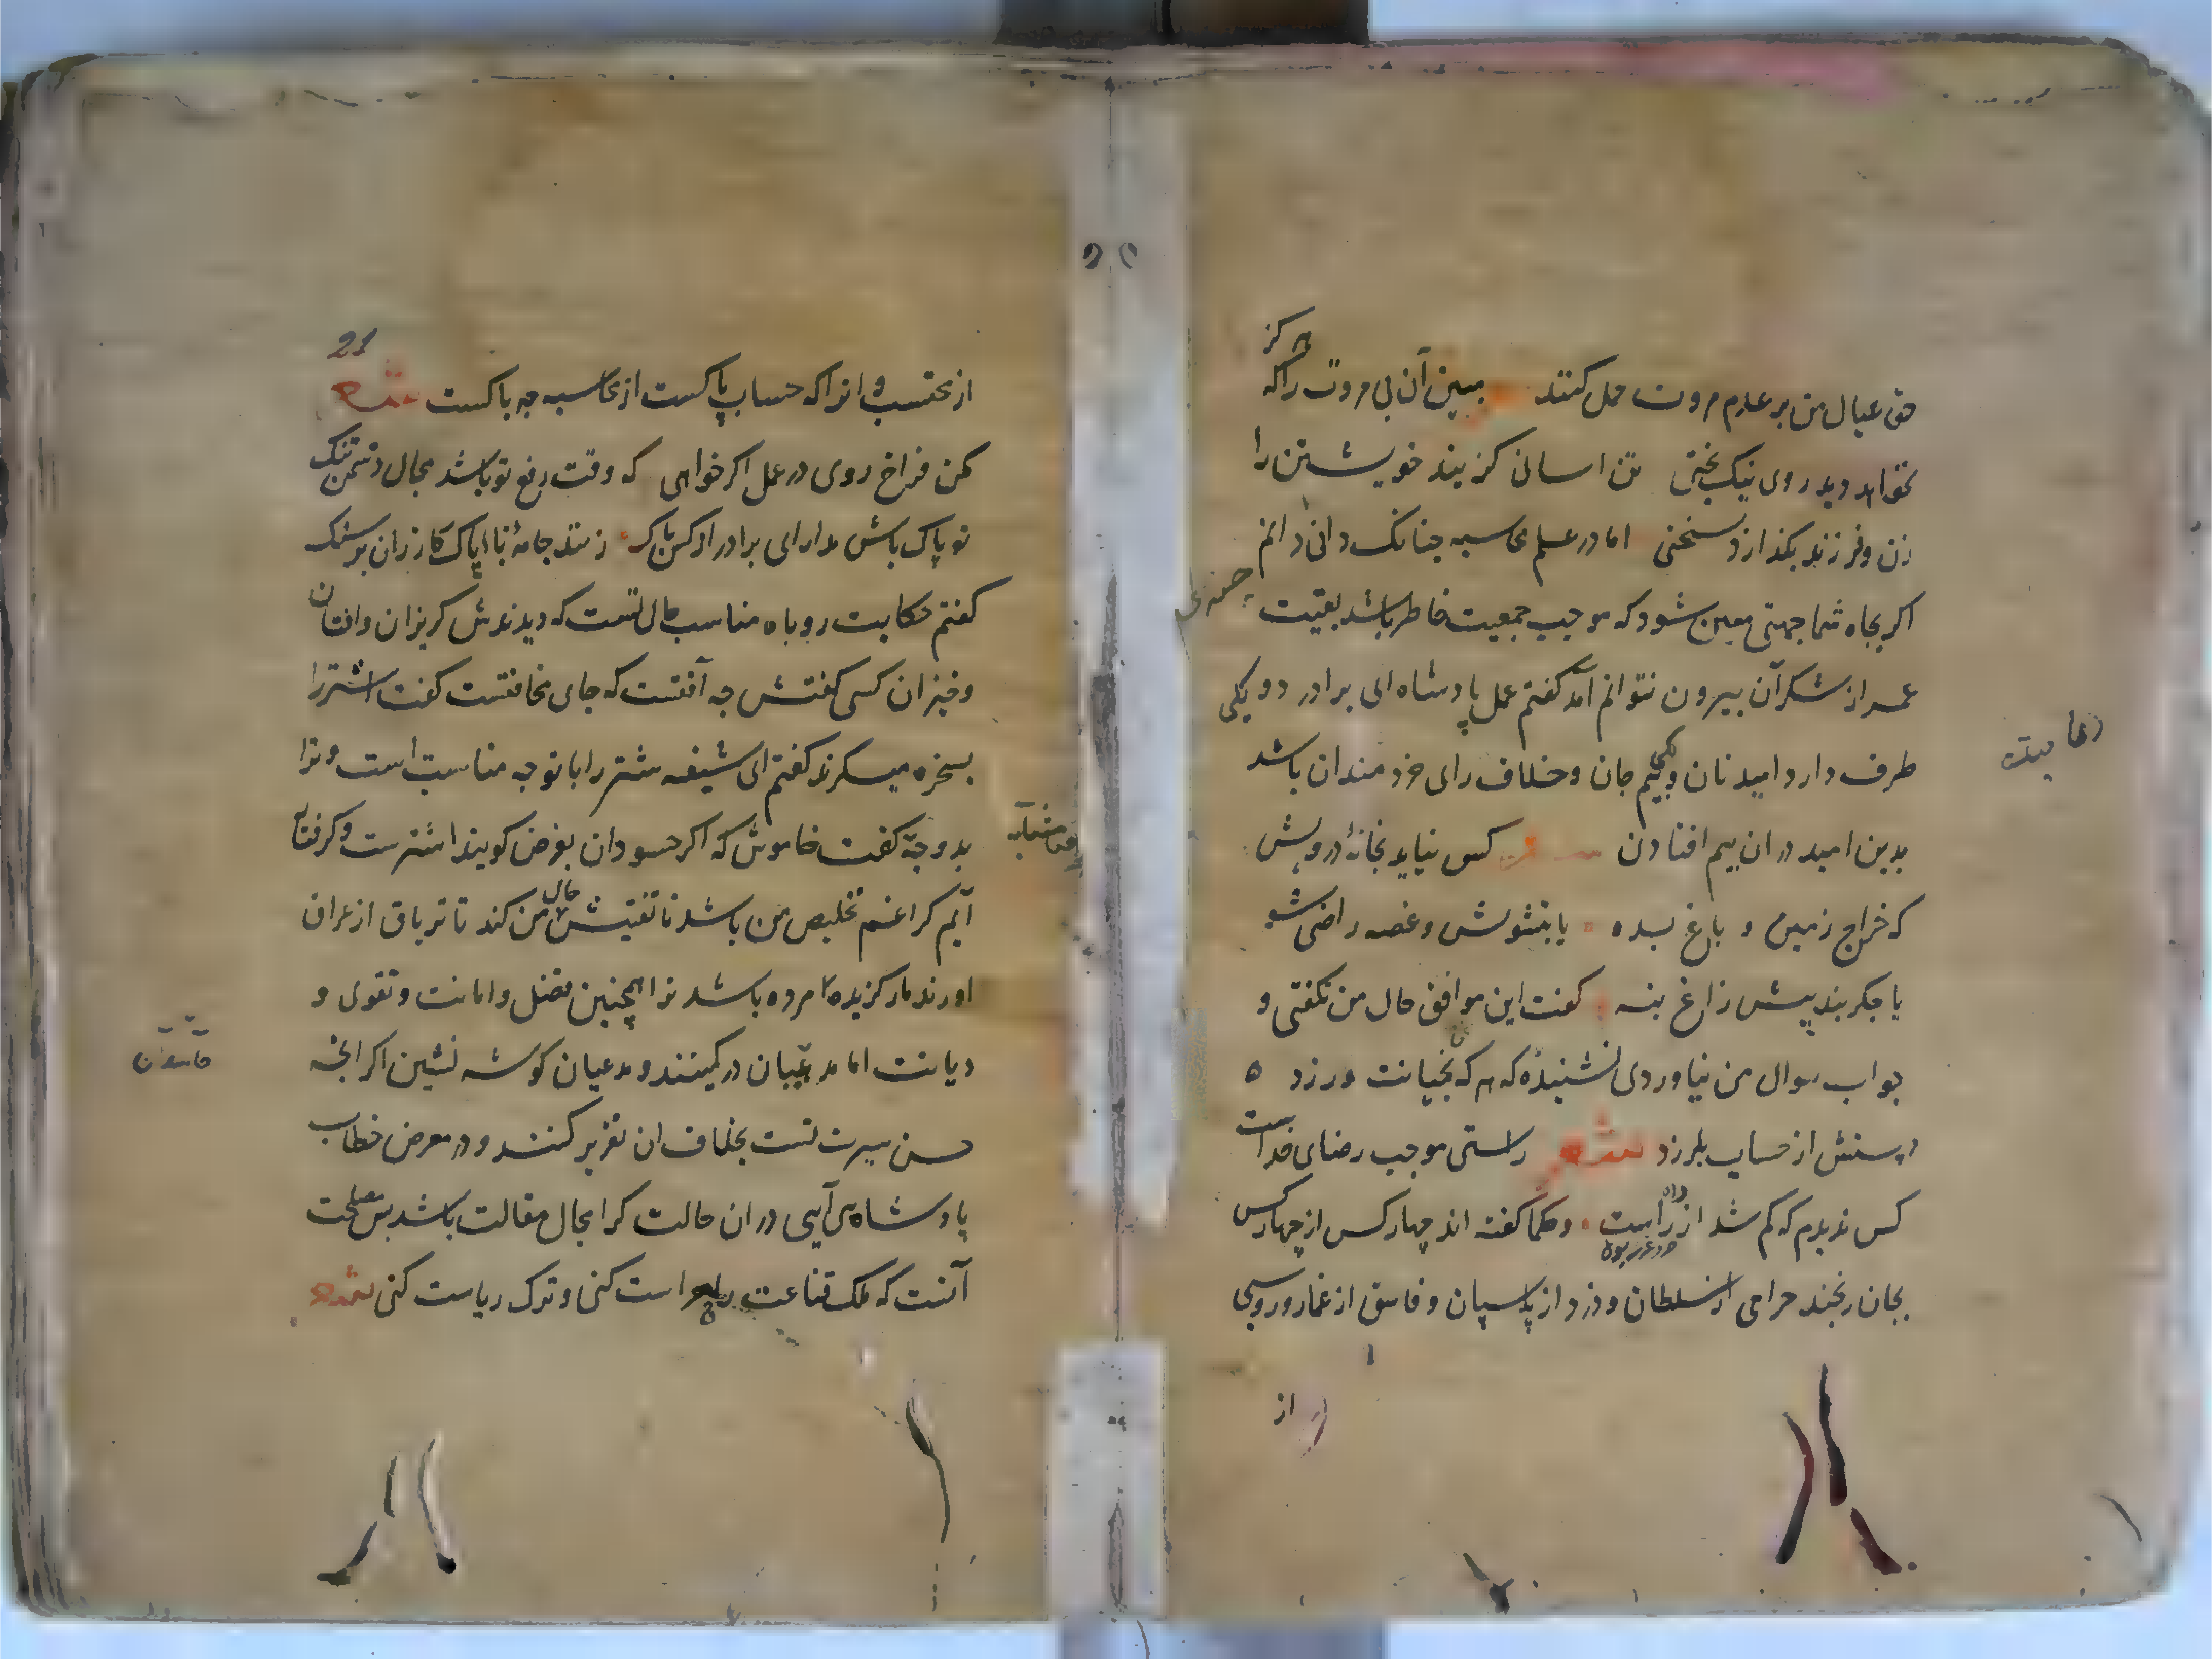 هر کز
حق عیال من بر عدم مروت حمل کنند مبین آن بی مروت راکه
نخواهد دید روی نیک بختی تن اسانی کزیند خویشتن را
زن و فرزند بکذارد بسختی اما در علم محاسبه چنانک دانی دانم
اکر بجاه شما جهتی معین شود که موجب جمعیت خاطر باشد بقیت
عمر از شکر آن بیرون نتوانم آمد کفتم عمل پادشاه ای برادر دو
طرف دارد امید نان و بیم جان و خلاف رای خردمندان باشد
بدین امید در ان بیم افتادن کس نیاید بخانهٔ درویش
که خراج زمین و باغ بده یا بتشویش و غصه راضی شو
یا جکربند پیش زاغ بنه کفت این موافق حال من نکفتی و
جواب سوال من نیاوردی نشنیدهٔ که هر که بخیانت ورزد
دستش از حساب بلرزد شعر راستی موجب رضای خداست
کس ندیدم که کم شد از ره راست و حکما کفته اند چهار کس از چهار کس
بجان رنجند حرامی از سلطان و دزد از پاسبان و فاسق از غماز و روسپی
از
21
از محتسب و انرا که حساب پاکست از محاسبه چه باکست شعر
مکن فراخ روی در عمل اکر خواهی که وقت رفع تو باشد مجال دشمن تنک
تو پاک باش مدار ای برادر از کس باک زنند جامهٔ ناپاک کازران بر سنک
کفتم حکایت روباه مناسب حال تست که دیدندش کریزان و افتان
و خیزان کسی کفتش چه آفتست که جای مخافتست کفت اشتر را
بسخره میکرند کفتم ای شیفه شتر را با تو چه مناسبت است و ترا
بدو چه کفت خاموش که اکر حسودان بغرض کویند اشترست و کرفتار
آیم کرا غم تخلیص من باشد تا تفتیش حال من کند تا تریاق از عراق
اورند مار کزیده مرده باشد ترا همچنین فضل و امانت و تقوی و
دیانت اما مدعیان در کمینند و مدعیان کوشه نشین اکر انچه
حسن سیرت تست بخلاف ان تقریر کنند و در معرض خطاب
پادشاه آیی در ان حالت کرا مجال مقالت باشد بس مصلحت
آنست که ملک قناعت را حراست کنی و ترک ریاست کنی شعر